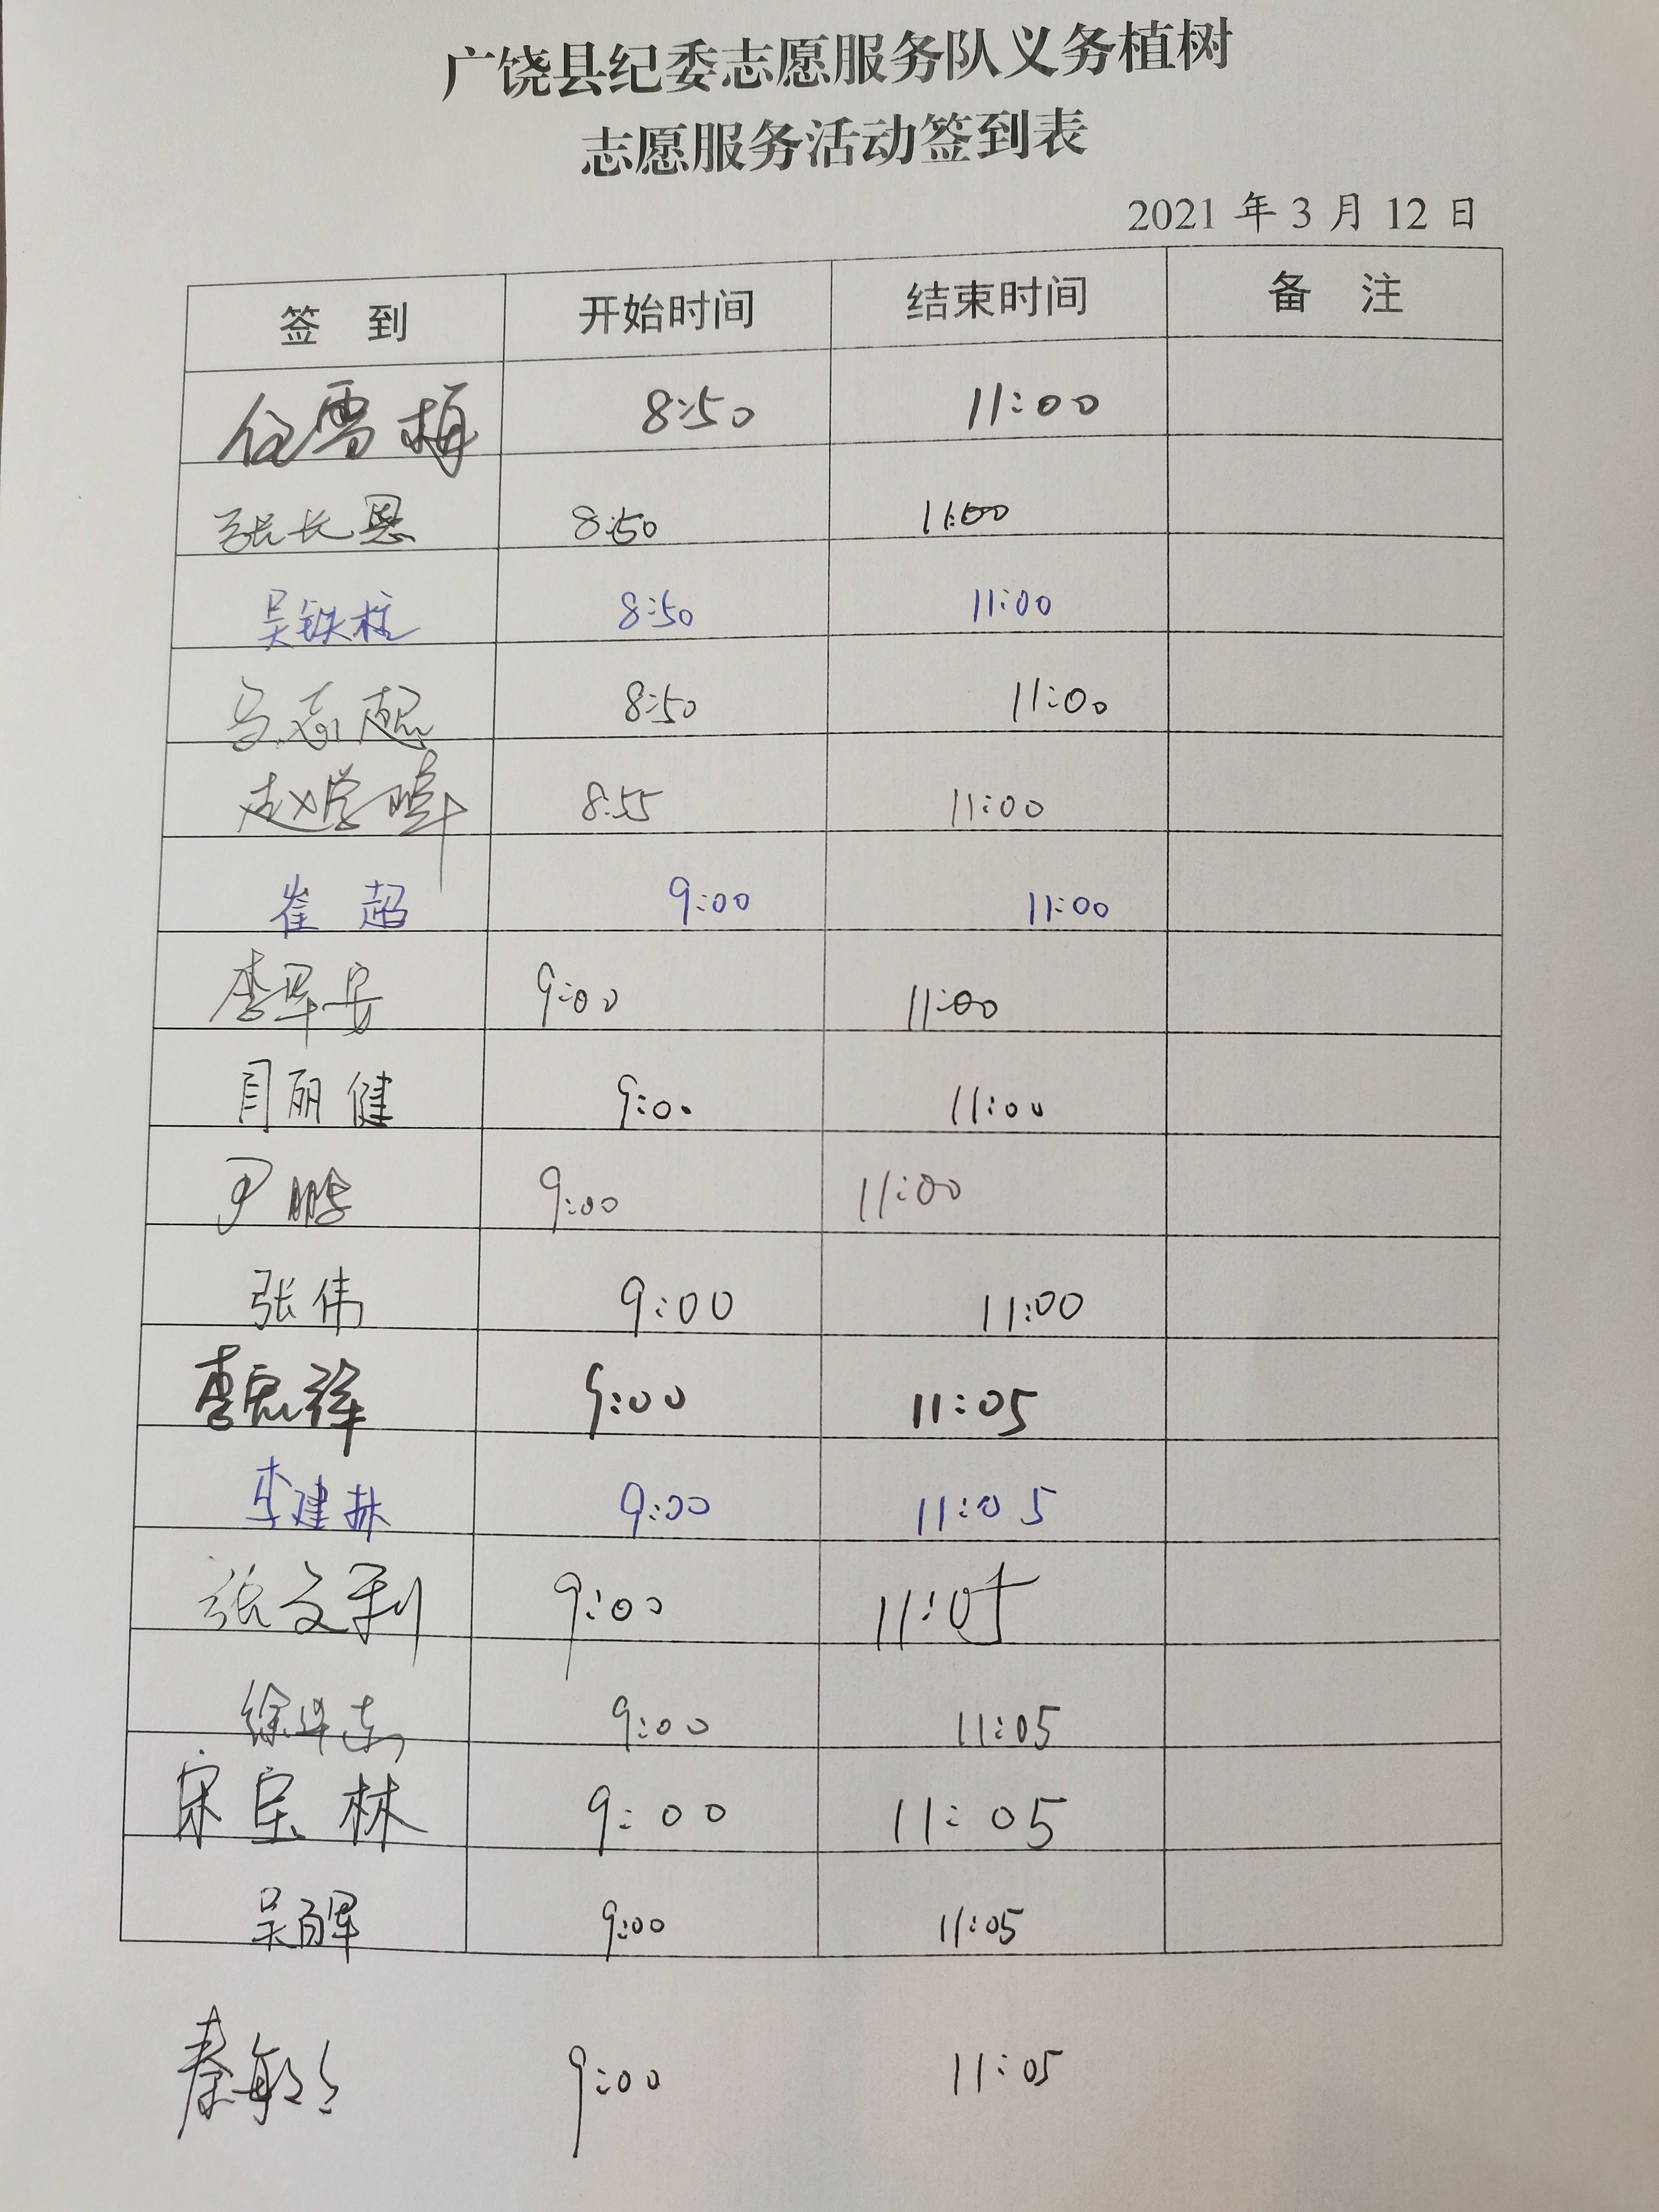 广饶县纪委志愿服务队义务植树
志愿服务活动签到表
2021 年 3 月 12 日
签 到 开始时间 结束时间 备 注
任雪梅 8:50 11:00
张长恩 8:50 11:00
吴铁柱 8:50 11:00
马志超 8:50 11:00
赵学晖 8:55 11:00
崔 超 9:00 11:00
李军安 9:00 11:00
丽健 9:00 11:00
尹鹏 9:00 11:00
张伟 9:00 11:00
李 9:00 11:05
李建林 9:00 11:05
张文利 9:00 11:05
徐 9:00 11:05
宋宝林 9:00 11:05
吴 9:00 11:05
秦敏 9:00 11:05